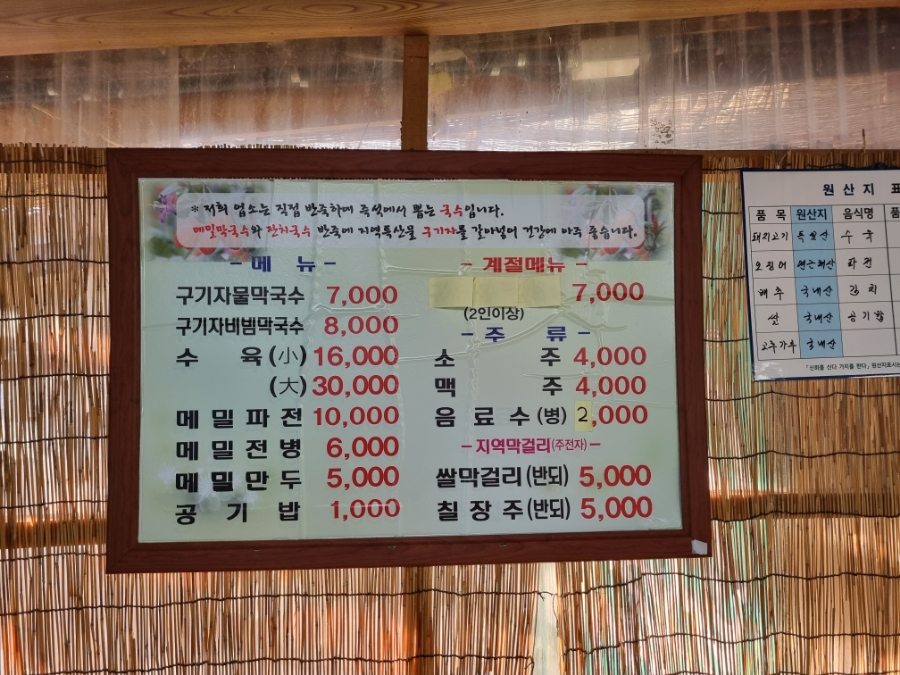 ※저희 업소는 직접 반죽하며 즉석에서 뽑는 국수입니다.
메밀막국수와 잔치국수 반죽에 지역특산물 구기자를 갈아넣어 건강에 아주 좋습니다.
-메 뉴-
구기자물막국수 7,000
구기자비빔막국수 8,000
수 육(小) 16,000
(大) 30,000
메밀파전 10,000
메밀전병 6,000
메밀만두 5,000
공기밥 1,000
-계절메뉴-
7,000
(2인이상)
-주 류-
소 주 4,000
맥 주 4,000
음료수(병) 2,000
-지역막걸리(주전자)-
쌀막걸리(반되) 5,000
칠장주(반되) 5,000
원산지 표
품목 원산지 음식명 품
돼지고기 독일산 수육
오징어 원근해산 파전
배추 국내산 김치
쌀 국내산 공기밥
고추가루 국내산